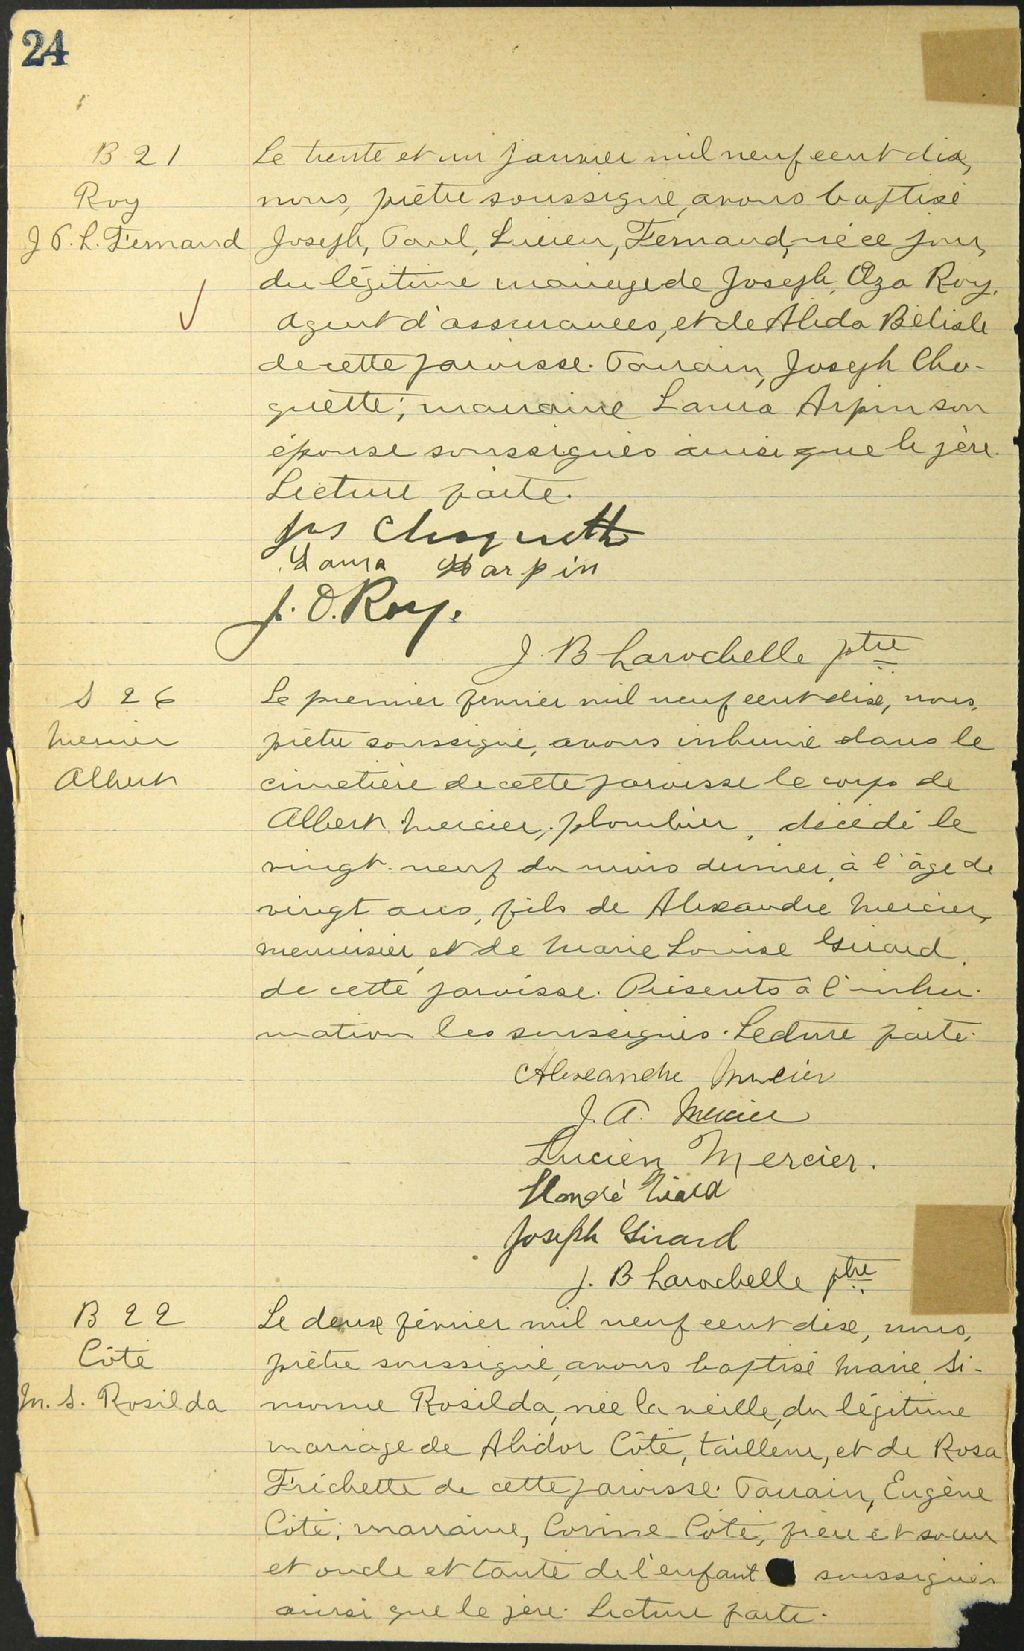 24
B 21
Roy
J. P. L. Fernand
Le trente et un janvier mil neuf cent dix,
nous, prêtre soussigné, avons baptisé
Joseph, Paul, Lucien, Fernand, né ce jour,
du légitime mariage de Joseph, Oza Roy,
agent d'assurances, et de Alida Bélisle
de cette paroisse. Parrain, Joseph Cho-
quette; marraine Laura Arpin son
épouse soussignés ainsi que le père.
Lecture faite.
Jos Choquette
Laura Harpin
J. O. Roy.
J. B Larochelle ptre
S 26
Mercier
Albert
Le premier février mil neuf cent dix, nous,
prêtre soussigné, avons inhumé dans le
cimetière de cette paroisse le corps de
Albert Mercier, plombier, décédé le
vingt-neuf du mois dernier, à l'âge de
vingt ans, fils de Alexandre Mercier,
menuisier, et de Marie Louise Girard,
de cette paroisse. Présents à l'inhu-
mation les soussignés. Lecture faite.
Alexandre Mercier
J. A. Mercier
Lucien Mercier.
Joseph Girard
J. B Larochelle ptre
B 22
Côté
M. S. Rosilda
Le deux février mil neuf cent dix, nous,
prêtre soussigné, avons baptisé Marie, Si-
monne Rosilda, née la veille, du légitime
mariage de Alidor Côté, tailleur, et de Rosa
Fréchette de cette paroisse. Parrain, Eugène
Côté; marraine, Corinne Côté, frère et soeur
et oncle et tante de l'enfant soussignés
ainsi que le père. Lecture faite.